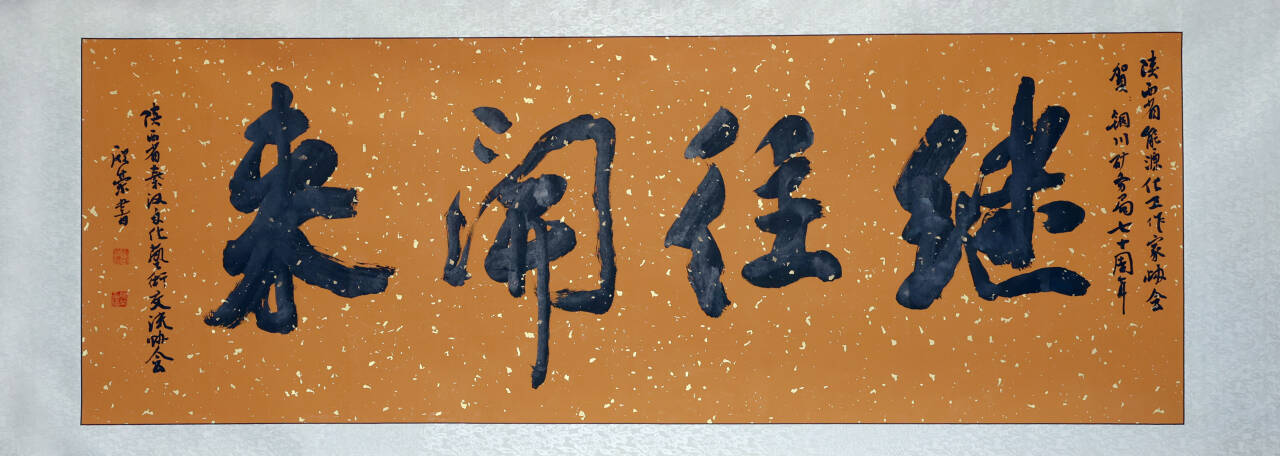 陕西省能源化工作家协会
贺：铜川矿务局七十周年
继往開来
陕西省秦汉文化藝術交流协会
书